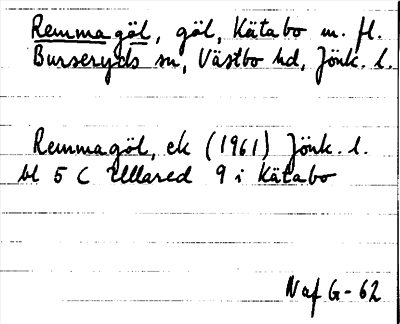 Remmagöl, göl, Kätabo m. fl.
Burseryds sn, Västbo hd, Jönk. l.
Remmagöl, ek (1961) Jönk. l.
bl 5 C Ullared 9 i Kätabo
Naf G-62